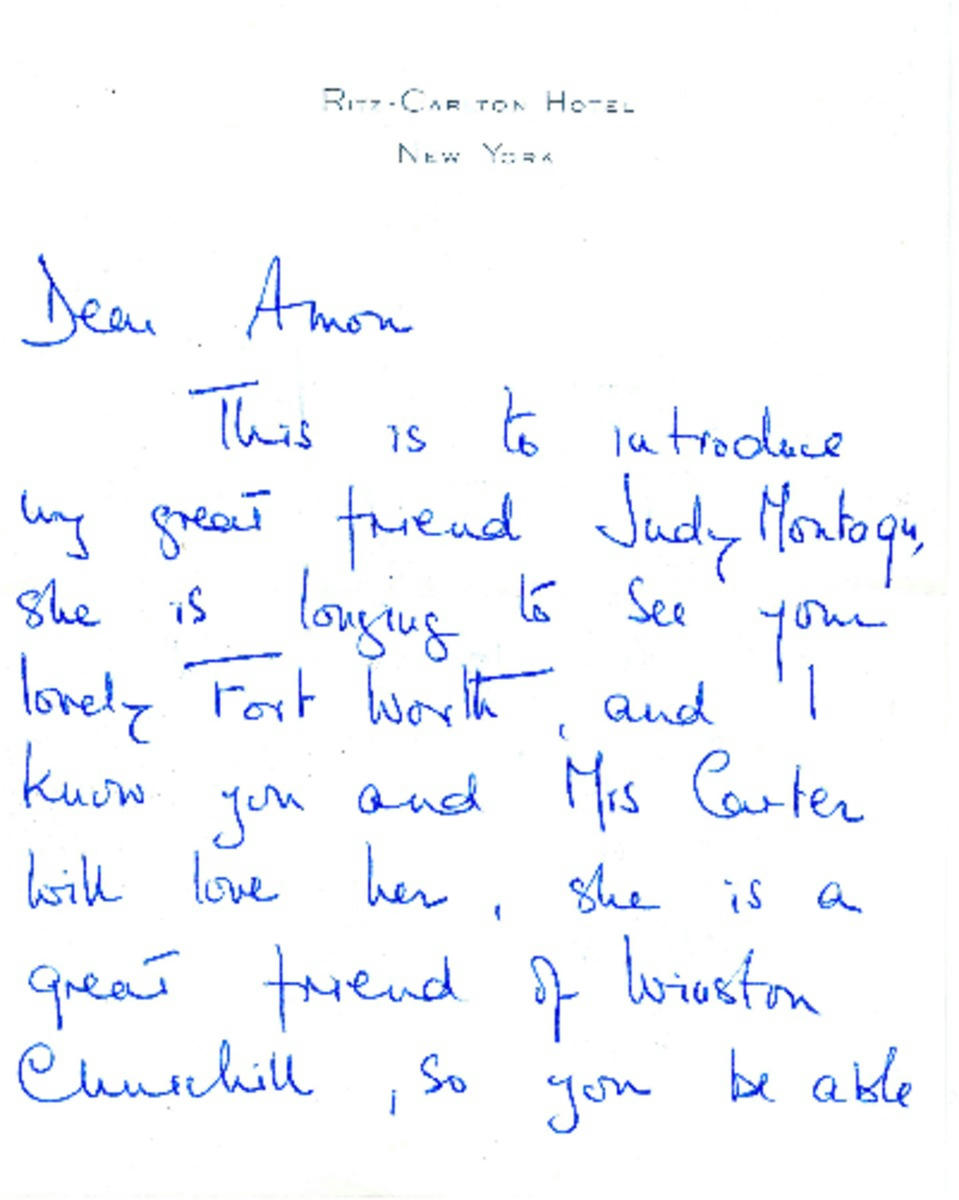 Ritz-Carlton Hotel
New York
Dear Amon
This is to introduce
my great friend Judy Montagu,
she is longing to see your
lovely Fort Worth, and I
know you and Mrs Carter
will love her, she is a
great friend of Winston
Churchill, so you be able